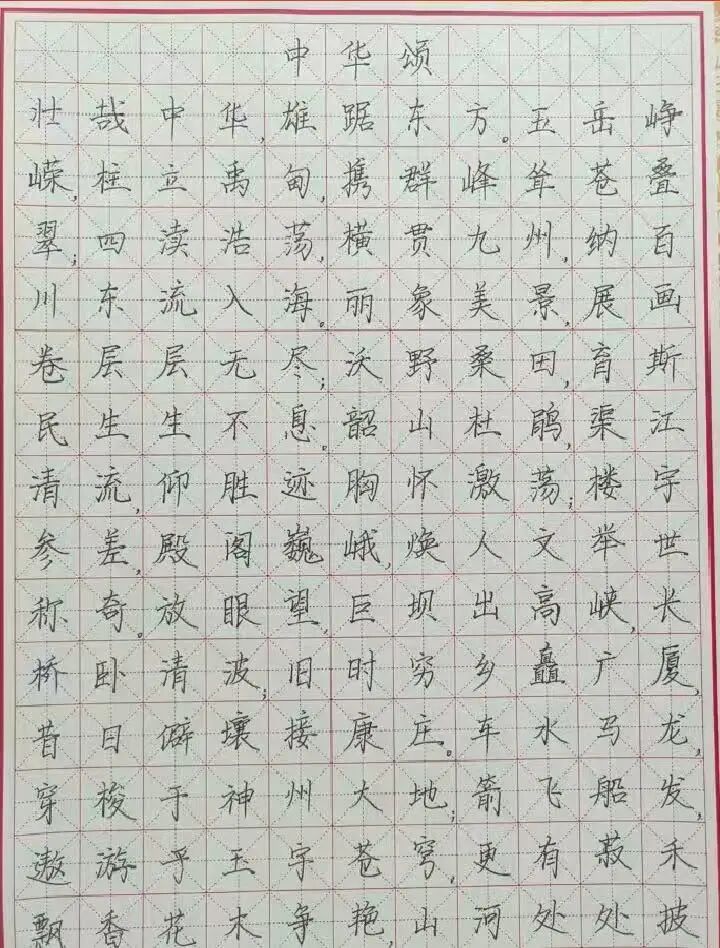 中华颂
壮哉中华,雄踞东方。玉岳峥
嵘,柱立禹甸,携群峰耸苍叠
翠;四渎浩荡,横贯九州,纳百
川东流入海。丽象美景,展画
卷层层无尽;沃野桑田,育斯
民生生不息。韶山杜鹃,渠江
清流,仰胜迹胸怀激荡;楼宇
参差,殿阁巍峨,焕人文举世
称奇。放眼望,巨坝出高峡,长
桥卧清波;旧时穷乡矗广厦,
昔日僻壤接康庄。车水马龙,
穿梭于神州大地;箭飞船发,
遨游乎玉宇苍穹,更有菽禾
飘香花木争艳,山河处处披